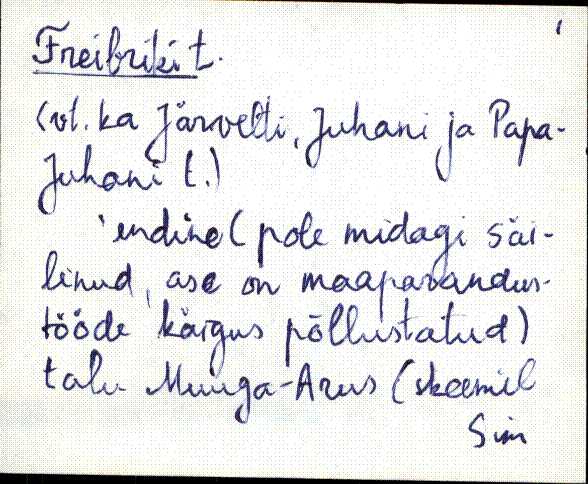 Freibriki t.
(vt. ka Järvelti, Juhani ja Papa-
Juhani t.)
'endine (pole midagi säi-
linud, ase on maaparandus-
tööde käigus põllustatud)
talu Muuga-Arus (skeemil
Sim